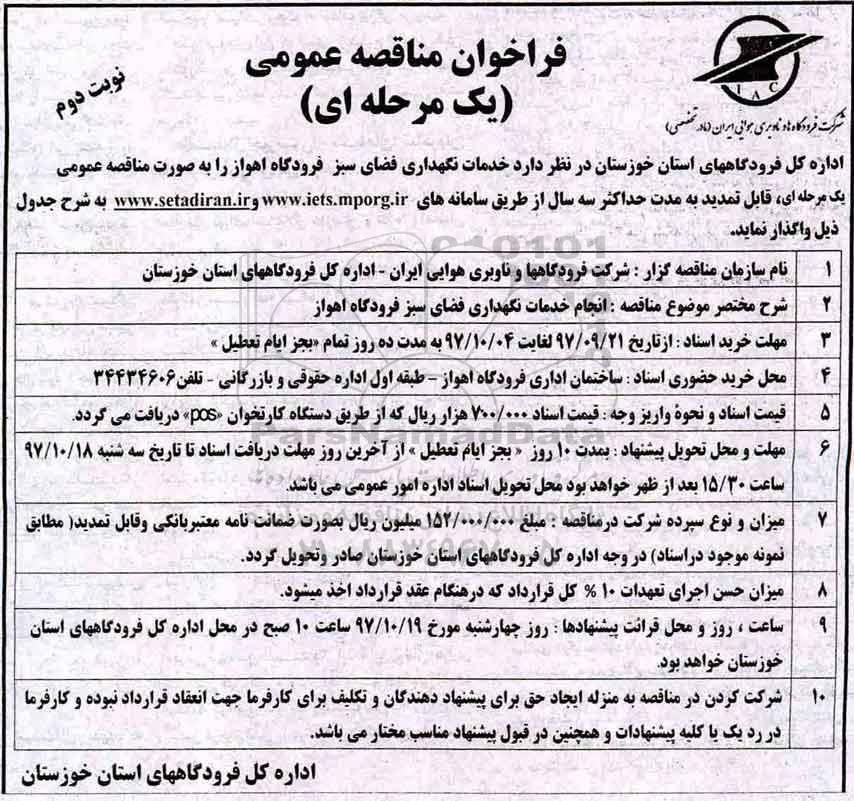 فراخوان مناقصه عمومی
(یک مرحله ای)
نوبت دوم
IAC
شرکت فرودگاه‌ها و ناوبری هوایی ایران (مادر تخصصی)
اداره کل فرودگاههای استان خوزستان در نظر دارد خدمات نگهداری فضای سبز فرودگاه اهواز را به صورت مناقصه عمومی
یک مرحله ای، قابل تمدید به مدت حداکثر سه سال از طریق سامانه های www.iets.mporg.ir و www.setadiran.ir به شرح جدول
ذیل واگذار نماید.
۱ نام سازمان مناقصه گزار : شرکت فرودگاهها و ناوبری هوایی ایران - اداره کل فرودگاههای استان خوزستان
۲ شرح مختصر موضوع مناقصه : انجام خدمات نگهداری فضای سبز فرودگاه اهواز
۳ مهلت خرید اسناد : ازتاریخ ۹۷/۰۹/۲۱ لغایت ۹۷/۱۰/۰۴ به مدت ده روز تمام «بجز ایام تعطیل »
۴ محل خرید حضوری اسناد : ساختمان اداری فرودگاه اهواز - طبقه اول اداره حقوقی و بازرگانی - تلفن ۳۴۴۳۴۶۰۶
۵ قیمت اسناد و نحوۀ واریز وجه : قیمت اسناد ۷۰۰/۰۰۰ هزار ریال که از طریق دستگاه کارتخوان «pos» دریافت می گردد.
۶ مهلت و محل تحویل پیشنهاد : بمدت ۱۰ روز « بجز ایام تعطیل » از آخرین روز مهلت دریافت اسناد تا تاریخ سه شنبه ۹۷/۱۰/۱۸
ساعت ۱۵/۳۰ بعد از ظهر خواهد بود محل تحویل اسناد اداره امور عمومی می باشد.
۷ میزان و نوع سپرده شرکت درمناقصه : مبلغ ۱۵۲/۰۰۰/۰۰۰ میلیون ریال بصورت ضمانت نامه معتبربانکی وقابل تمدید( مطابق
نمونه موجود دراسناد) در وجه اداره کل فرودگاههای استان خوزستان صادر وتحویل گردد.
۸ میزان حسن اجرای تعهدات ۱۰ % کل قرارداد که درهنگام عقد قرارداد اخذ میشود.
۹ ساعت ، روز و محل قرائت پیشنهادها : روز چهارشنبه مورخ ۹۷/۱۰/۱۹ ساعت ۱۰ صبح در محل اداره کل فرودگاههای استان
خوزستان خواهد بود.
۱۰ شرکت کردن در مناقصه به منزله ایجاد حق برای پیشنهاد دهندگان و تکلیف برای کارفرما جهت انعقاد قرارداد نبوده و کارفرما
در رد یک یا کلیه پیشنهادات و همچنین در قبول پیشنهاد مناسب مختار می باشد.
اداره کل فرودگاههای استان خوزستان
ParsNamadData